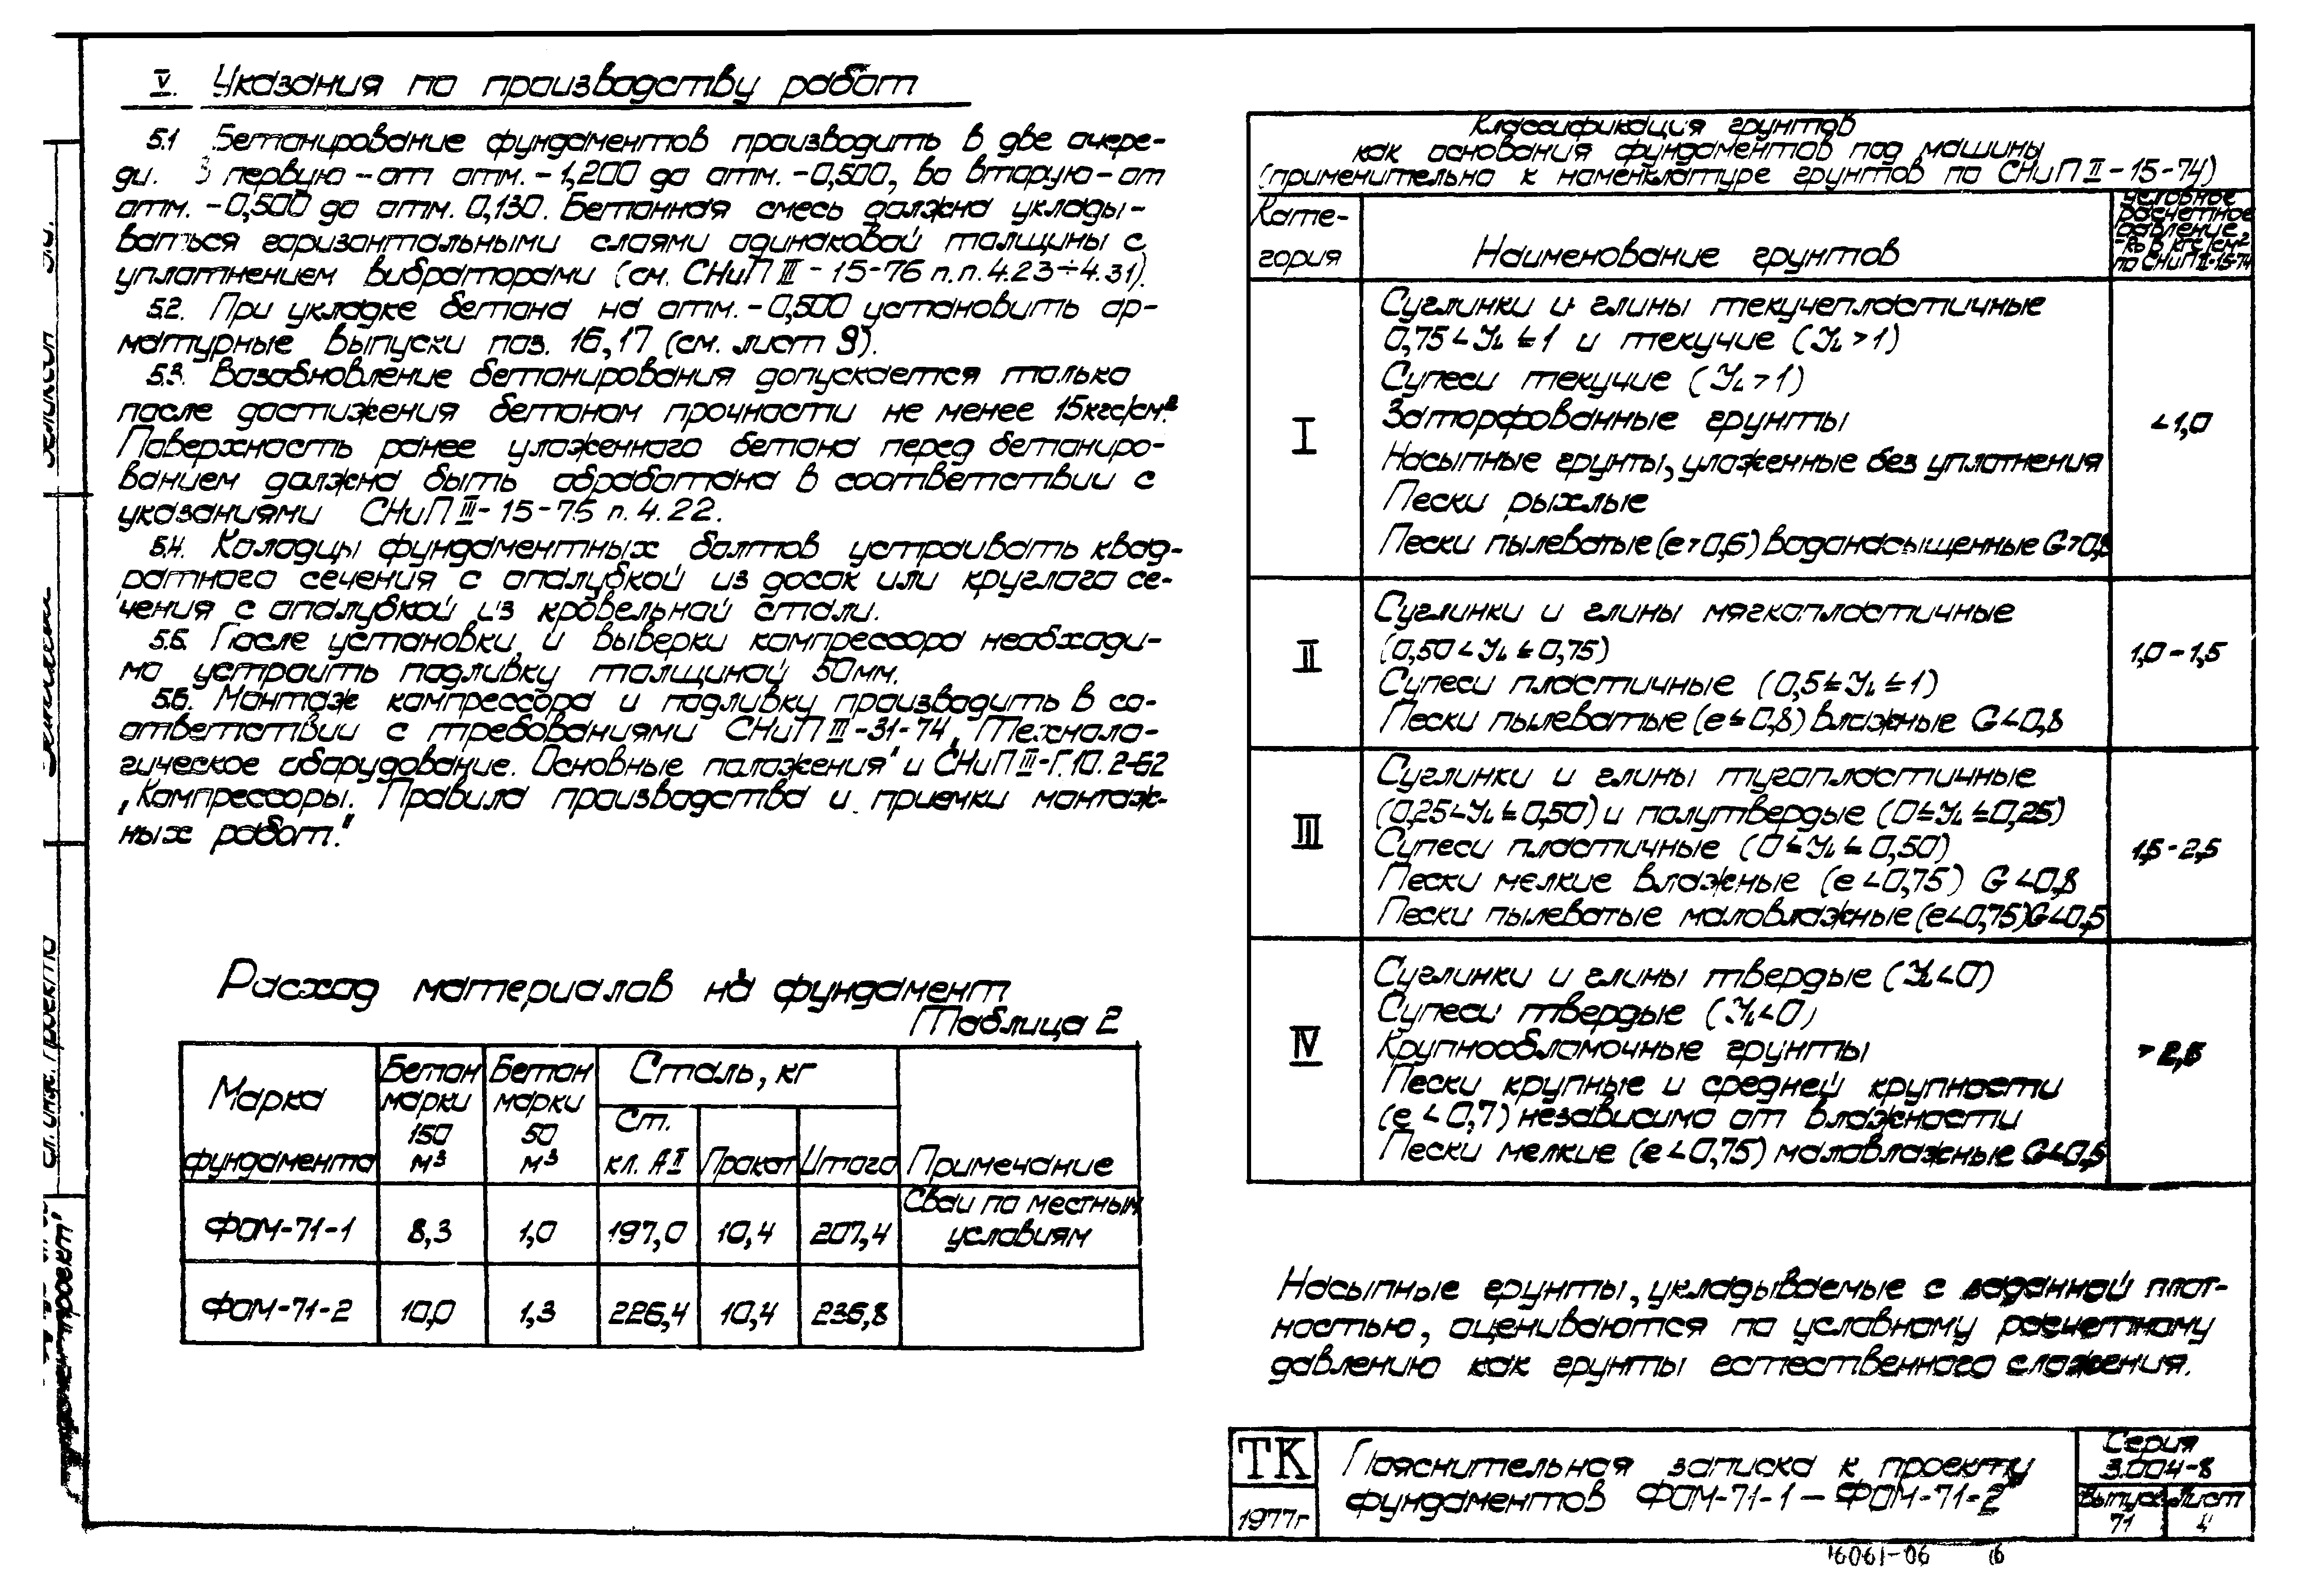 V. Указания по производству работ
5.1 Бетонирование фундаментов производить в две очере-
ди. В первую – от отм. –1,200 до отм. –0,500, во вторую – от
отм. –0,500 до отм. 0,130. Бетонная смесь должна уклады-
ваться горизонтальными слоями одинаковой толщины с
уплотнением вибраторами (см. СНиП III – 15-76 п.п. 4.23÷4.31).
5.2. При укладке бетона на отм. –0,500 установить ар-
матурные выпуски поз. 16,17 (см. лист 9).
5.3. Возобновление бетонирования допускается только
после достижения бетоном прочности не менее 15кгс/см².
Поверхность ранее уложенного бетона перед бетониро-
ванием должна быть обработана в соответствии с
указаниями СНиП III- 15-76 п. 4.22.
5.4. Колодцы фундаментных болтов устраивать квад-
ратного сечения с опалубкой из досок или круглого се-
чения с опалубкой из кровельной стали.
5.5. После установки и выверки компрессора необходи-
мо устроить подливку толщиной 50мм.
5.6. Монтаж компрессора и подливку производить в со-
ответствии с требованиями СНиП III-31-74 „Техноло-
гическое оборудование. Основные положения" и СНиП III-Г.10. 2-62
„Компрессоры. Правила производства и приемки монтаж-
ных работ."
Расход материалов на фундамент
Таблица 2
Марка фундамента | Бетон марки 150 м³ | Бетон марки 50 м³ | Сталь, кг | Примечание
Ст. кл. А II | Прокат | Итого
ФОМ-71-1 | 8,3 | 1,0 | 197,0 | 10,4 | 207,4 | Сваи по местным условиям
ФОМ-71-2 | 10,0 | 1,3 | 226,4 | 10,4 | 236,8
Классификация грунтов
как основания фундаментов под машины
(применительно к номенклатуре грунтов по СНиП II – 15-74)
Кате-
гория
Наименование грунтов
условное
расчетное
давление,
-R₀ в кгс/см²
по СНиП II-15-74
I
Суглинки и глины текучепластичные
0,75 < Y_L ≤ 1 и текучие (Y_L > 1)
Супеси текучие (Y_L > 1)
Заторфованные грунты
Насыпные грунты, уложенные без уплотнения
Пески рыхлые
Пески пылеватые (e > 0,6) водонасыщенные G > 0,8
< 1,0
II
Суглинки и глины мягкопластичные
(0,50 < Y_L ≤ 0,75)
Супеси пластичные (0,5 ≤ Y_L ≤ 1)
Пески пылеватые (e ≤ 0,8) влажные G < 0,8
1,0 – 1,5
III
Суглинки и глины тугопластичные
(0,25 < Y_L ≤ 0,50) и полутвердые (0 ≤ Y_L ≤ 0,25)
Супеси пластичные (0 ≤ Y_L ≤ 0,50)
Пески мелкие влажные (e < 0,75) G < 0,8
Пески пылеватые маловлажные (e < 0,75) G < 0,5
1,5 - 2,5
IV
Суглинки и глины твердые (Y_L < 0)
Супеси твердые (Y_L < 0)
Крупнообломочные грунты
Пески крупные и средней крупности
(e < 0,7) независимо от влажности
Пески мелкие (e < 0,75) маловлажные G < 0,5
> 2,5
Насыпные грунты, укладываемые с заданной плот-
ностью, оцениваются по условному расчетному
давлению как грунты естественного сложения.
ТК
1977г
Пояснительная записка к проекту
фундаментов ФОМ-71-1 – ФОМ-71-2
Серия
3.004-8
Выпуск
71
Лист
4
16061-06 6